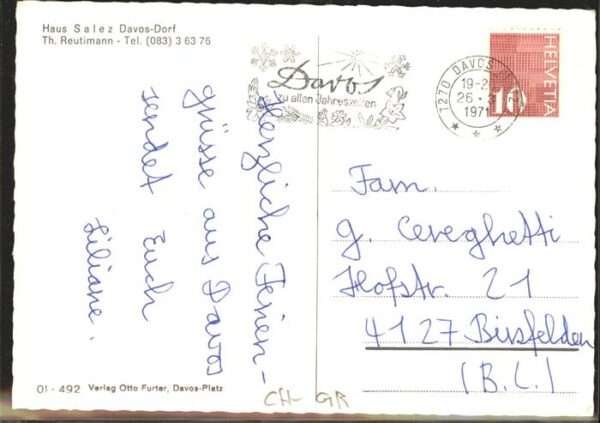 Haus Salez Davos-Dorf
Th. Reutimann - Tel. (083) 3 63 76
Davos
zu allen Jahreszeiten
DAVOS
26
1971
HELVETIA
10
Herzliche Ferien-
grüsse aus Davos
sendet Euch
Liliane.
Fam.
G. Cereghetti
Hofstr. 21
4127 Birsfelden
(B.L.)
01-492 Verlag Otto Furter, Davos-Platz
CH- GR